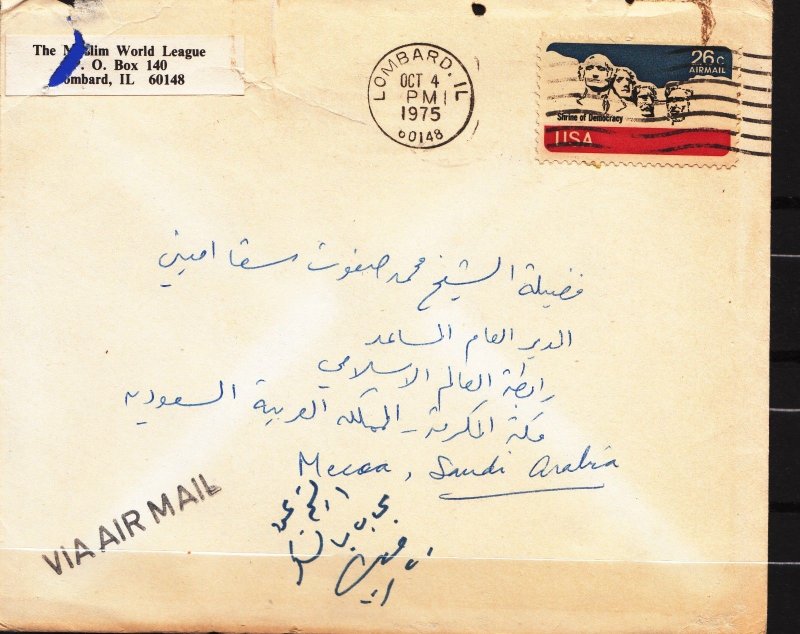 The Muslim World League
P. O. Box 140
Lombard, IL 60148
LOMBARD, IL
OCT 4
PM
1975
60148
26c
AIRMAIL
Shrine of Democracy
USA
فضيلة الشيخ محمد صفوت سقا اميني
المدير العام المساعد
رابطة العالم الاسلامي
مكة المكرمة - المملكة العربية السعودية
Mecca, Saudi Arabia
VIA AIR MAIL